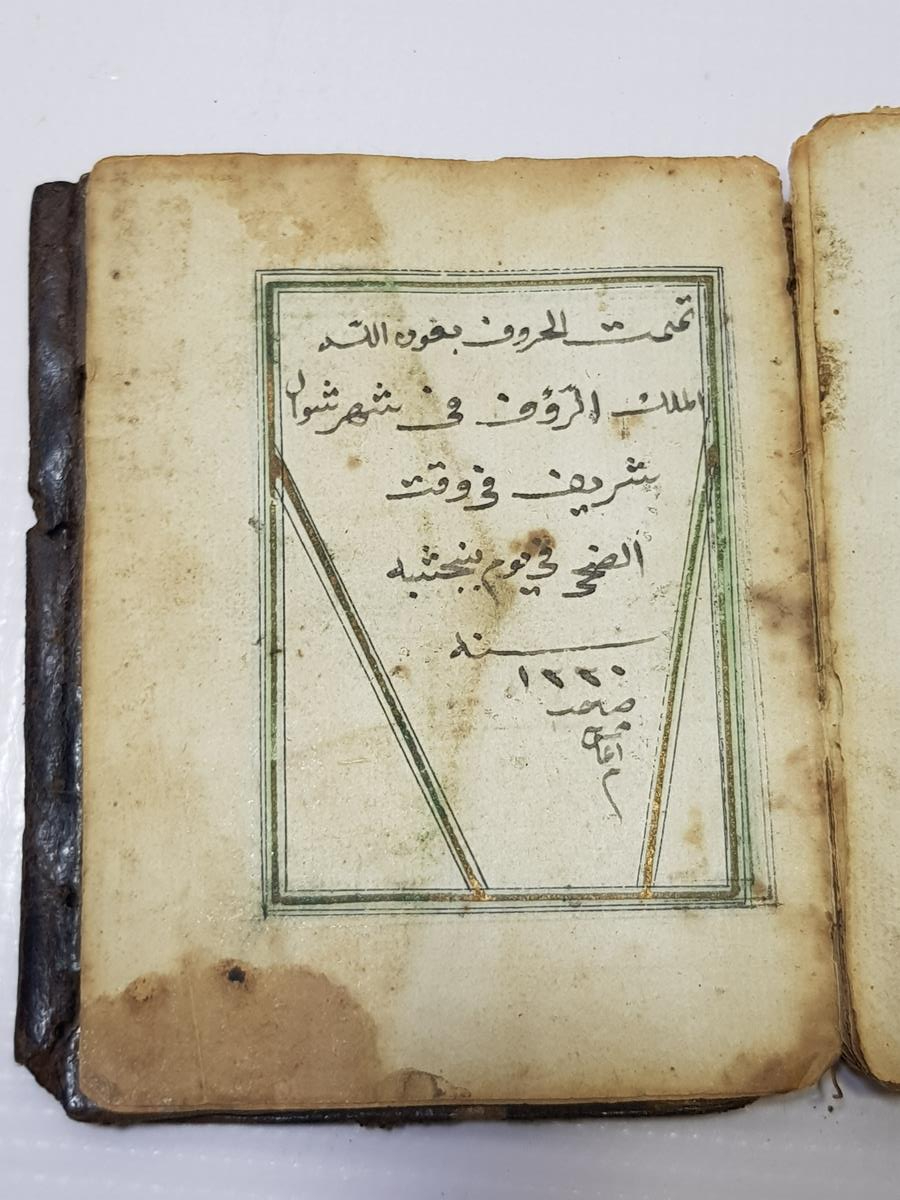 تمت الحروف بعون الله
الملك الرؤف فى شهر شوال
شريف فى وقت
الضحى في يوم پنجشبه
سنه
١٢٢٠